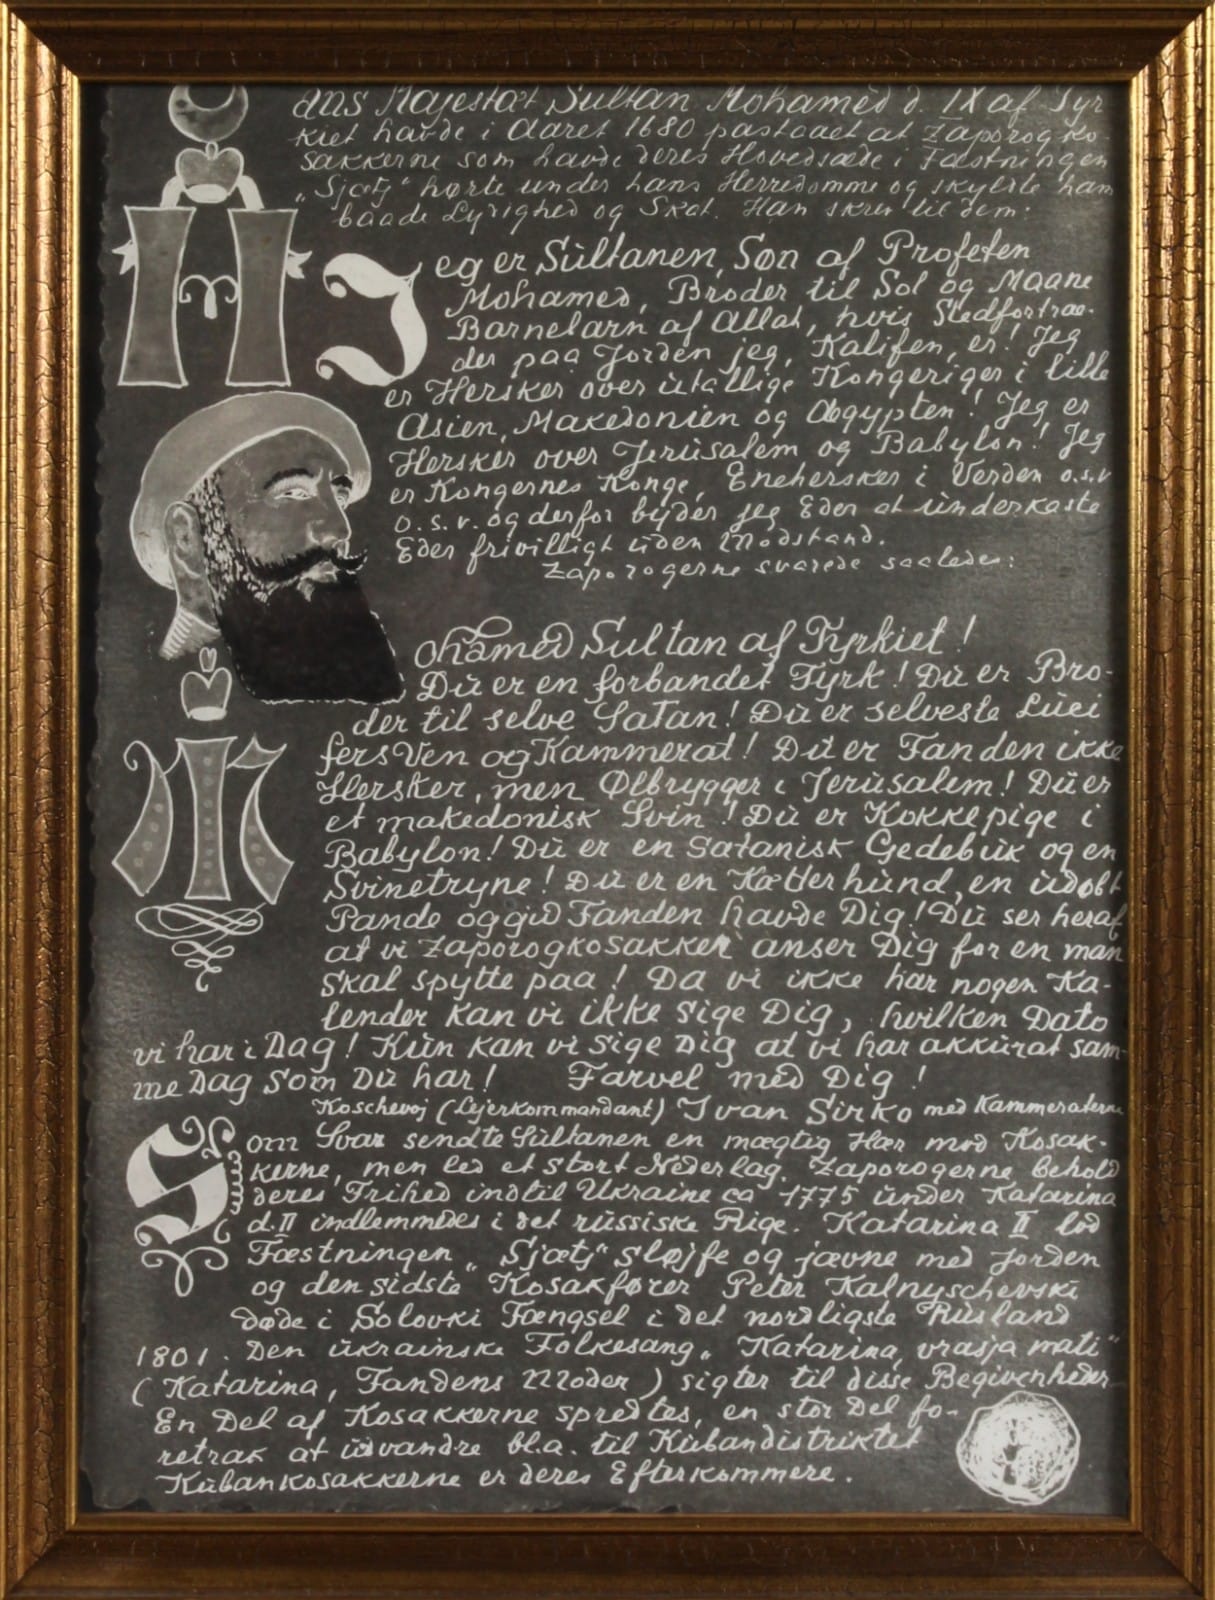 Hans Majestæt Sultan Mohamed d. IX af Tyr
kiet havde i Aaret 1680 påstaaet at Zaporogko-
sakkerne som havde deres Hovedsæde i Fæstningen
„Sjætj" hørte under hans Herredømme og skyldte ham
baade Lydighed og Skat. Han skrev til dem:
Jeg er Sultanen, Søn af Profeten
Mohamed, Broder til Sol og Maane
Barnebarn af Allah, hvis Stedfortræ-
der paa Jorden jeg, Kalifen, er! Jeg
er Hersker over utallige Kongeriger i lille
Asien, Makedonien og Ægypten! Jeg er
Hersker over Jerusalem og Babylon! Jeg
er Kongernes Konge, Enehersker i Verden o.s.v
o.s.v. og derfor byder jeg Eder at underkaste
Eder frivilligt uden Modstand.
Zaporogerne svarede saaledes:
Mohamed Sultan af Tyrkiet!
Du er en forbandet Tyrk! Du er Bro-
der til selve Satan! Du er selveste Luci
fers Ven og Kammerat! Du er Fanden ikke
Hersker, men Ølbrygger i Jerusalem! Du er
et makedonisk Svin! Du er Kokkepige i
Babylon! Du er en Satanisk Gedebuk og en
Svinetryne! Du er en Kætterhund, en udøbt
Pande og gid Fanden havde Dig! Du ser heraf
at vi Zaporogkosakker anser Dig for en man
skal spytte paa! Da vi ikke har nogen Ka-
lender kan vi ikke sige Dig, hvilken Dato
vi har i Dag! Kun kan vi sige Dig at vi har akkurat sam-
me Dag som Du har! Farvel med Dig!
Koschevoj (Lejerkommandant) Ivan Sirko med Kammeraterne
Som Svar sendte Sultanen en mægtig Hær mod Kosak-
kerne, men led et stort Nederlag. Zaporogerne behold
deres Frihed indtil Ukraine ca 1775 under Katarina
d. II indlemmedes i det russiske Rige. Katarina II lod
Fæstningen „Sjætj" sløjfe og jævne med Jorden
og den sidste Kosakfører Peter Kalnyschevski
døde i Solovki Fængsel i det nordligste Rusland
1801. Den ukrainske Folkesang „Katarina, vrasja mati"
(Katarina, Fandens Moder) sigter til disse Begivenheder
En Del af Kosakkerne spredtes, en stor Del fo-
retrak at udvandre bl.a. til Kubandistriktet
Kubankosakkerne er deres Efterkommere.